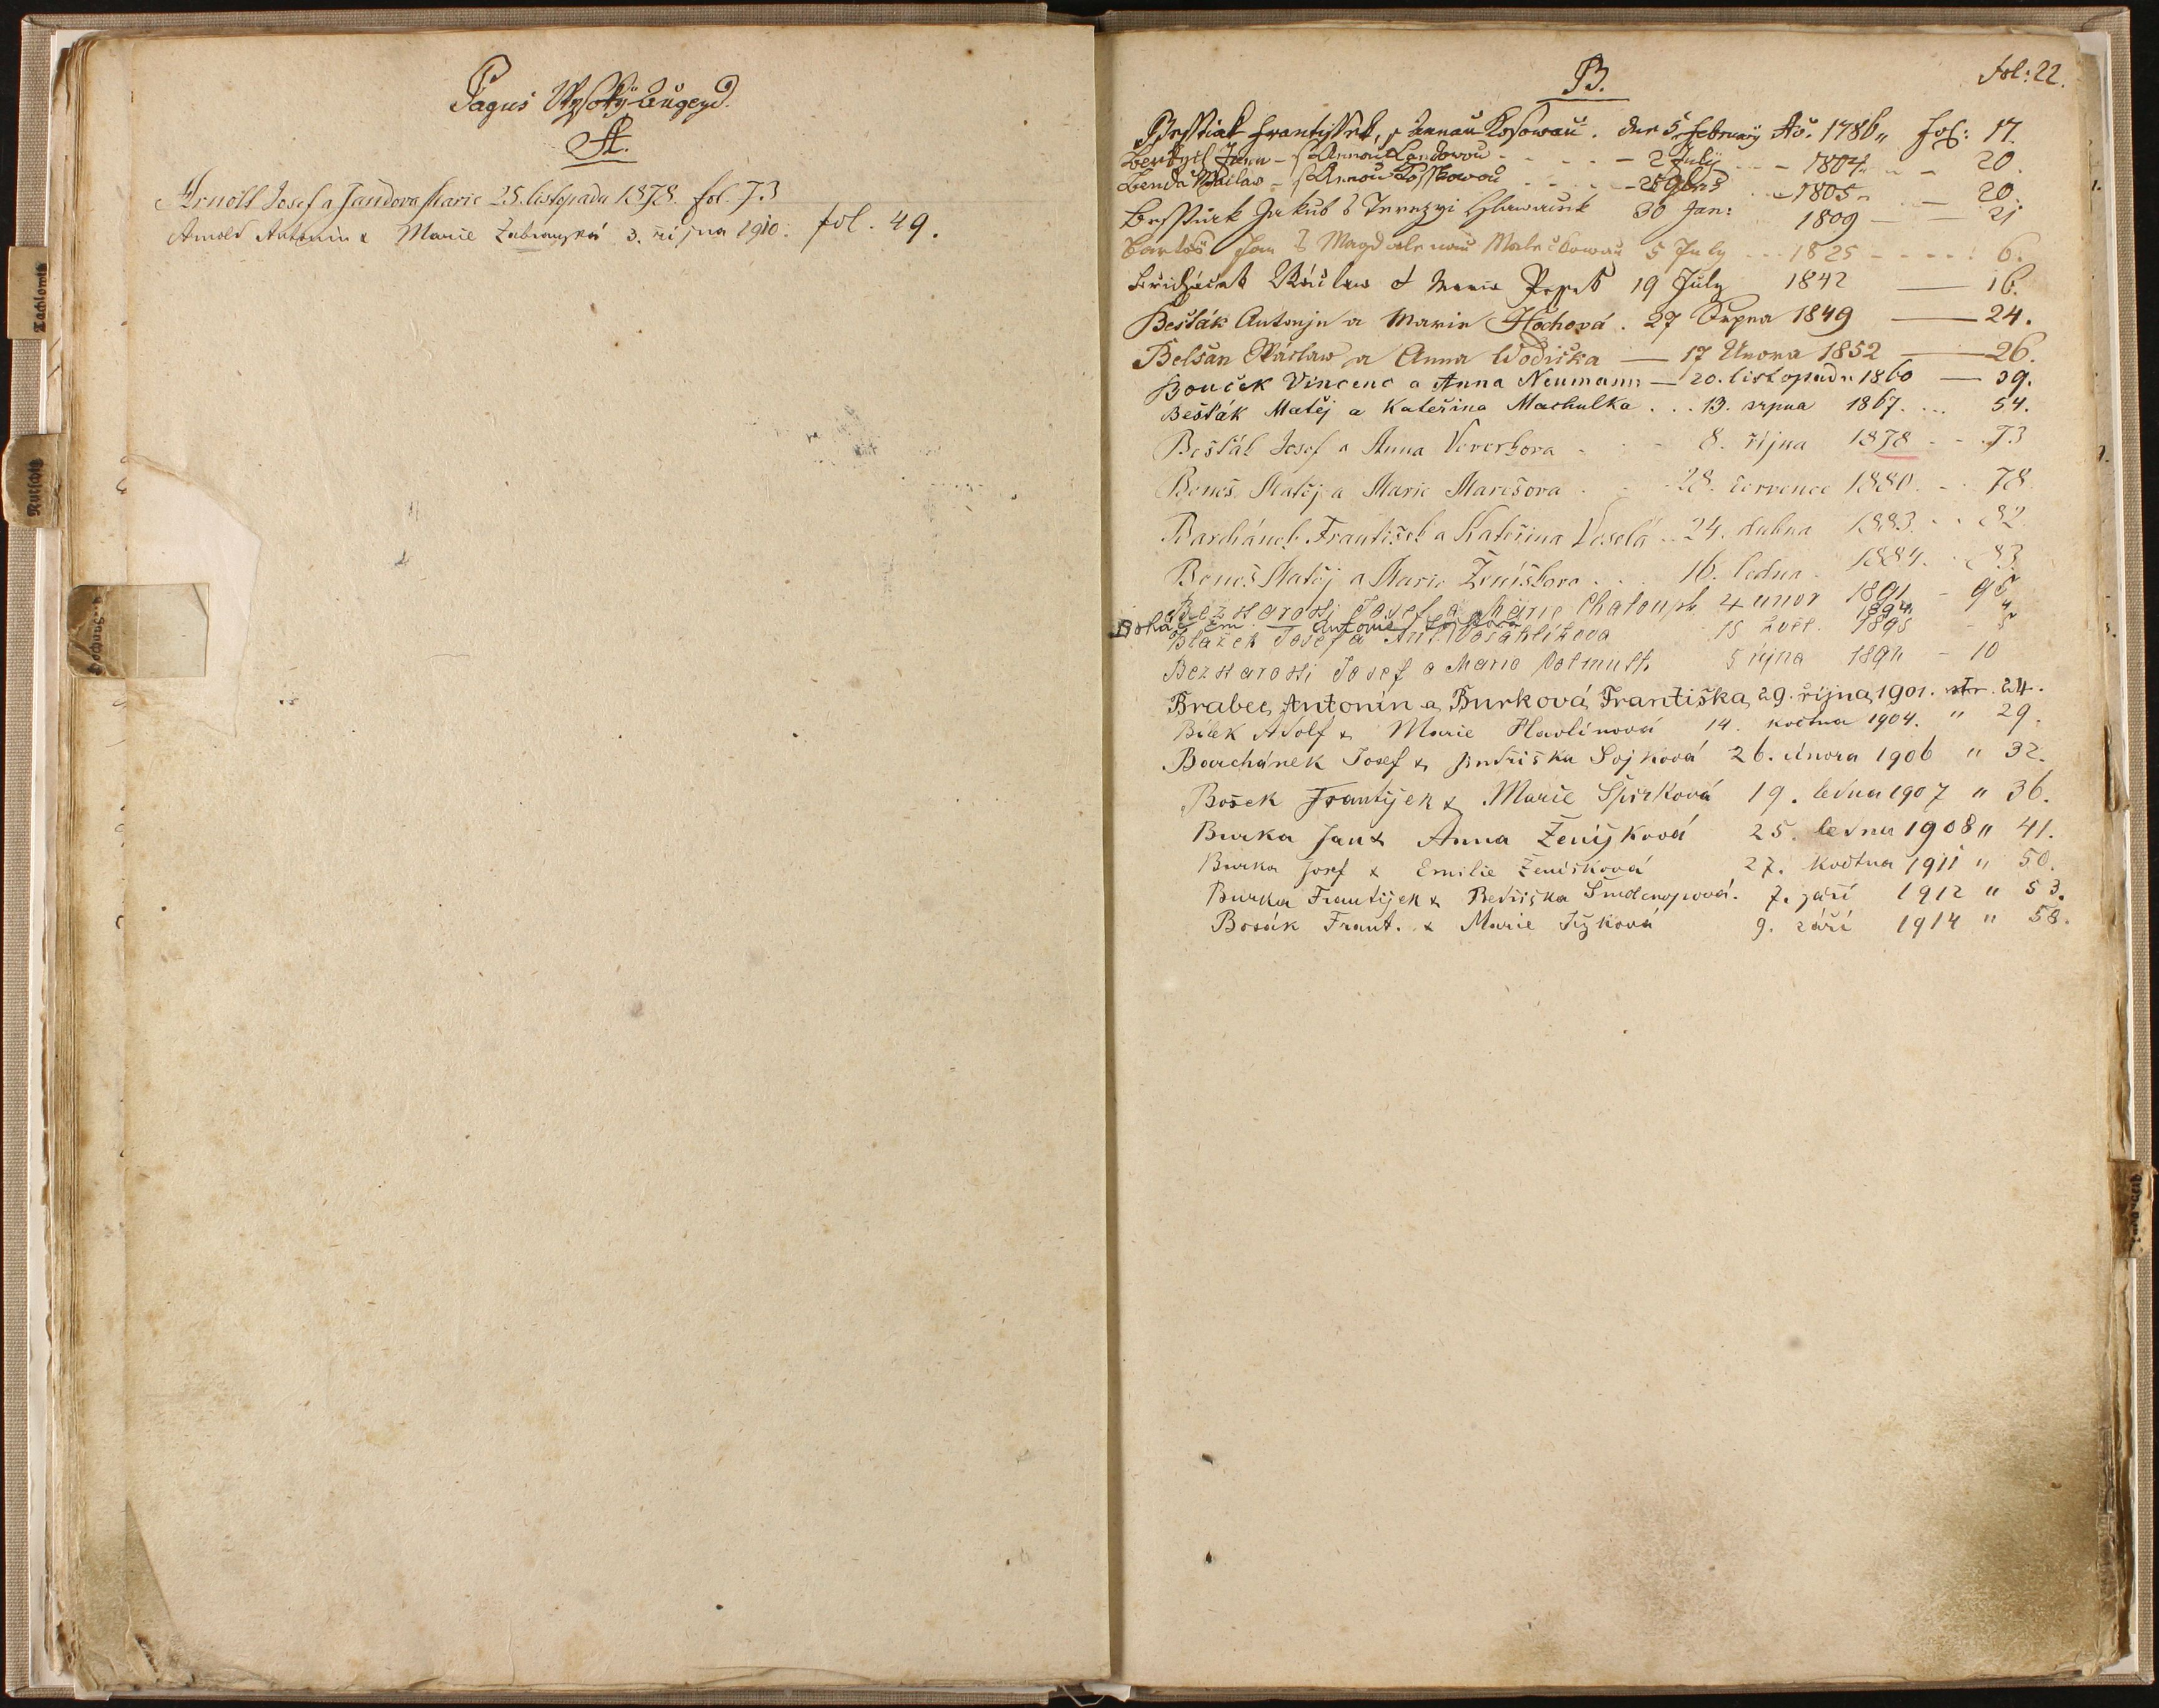 Pagus Wysoký Augezd.
A.
Arnolt Josef a Jandova Marie 25. listopadu 1878. fol. 73
Arnold Antonín & Marie Zábranská 3. října 1910. fol. 49.
B.
fol: 22.
Besstiak Frantissek, s Annau Kosowau. den 5 February Ao. 1786 fol: 17.
Jann - s Annau Landowou - 2 July - 1804 - 20.
Benda Waclaw - s Annou - 28 9bris - 1805 - 20.
Jakub s 30 Jan: 1809 — 21
Bartoš Jan s Magdalenau 5 July - 1825 - 6.
Wáclaw 19 July 1842 — 16.
Bešťák Antonjn a Marie Hochová. 27 Srpna 1849 — 24.
Belšan Wáclaw a Anna Wodička — 17 Unora 1852 — 26.
Bouček Vincenc a Anna Neumann — 20. listopadu 1860 — 39.
Bešťák Matěj a Kateřina Machulka . . . 13. srpna 1867. ... 54.
Bešťák Josef a Anna - 8. října 1878 - - 73
Beneš Matěj a Marie Marešova . - 28. července 1880. - 78
Barchánek František a Kateřina Veselá .. 24. dubna 1883. . . 82
Beneš Matěj a Marie Ženíškova . . . 16. ledna. 1884. . 83
Bezstarosti Josef a Marie Chaloupk 4 únor 1891 - 95
Antonie 1894 4
Blažek Josef a Ant. 15 1895 - 5
Bezstarosti Josef a Marie Volmuth 5 října - 10
Brabec Antonín a Burková Františka, 29. října, 1901. str. 24.
Bílek Adolf & Marie Havlínová 14. května 1904. " 29.
Barchánek Josef & Jindřiška Sojková 26. února 1906 " 32.
Bošek František & Marie Špirková 19. ledna 1907 " 36.
Burka Jan & Anna Ženíšková 25. ledna 1908 " 41.
Burka Josef & Emilie Ženíšková 27. května 1911 " 50.
Burka František & Bedřiška 7. září 1912 " 53.
Bosák Frant. & Marie 9. září 1914 " 58.
Tachlowitz